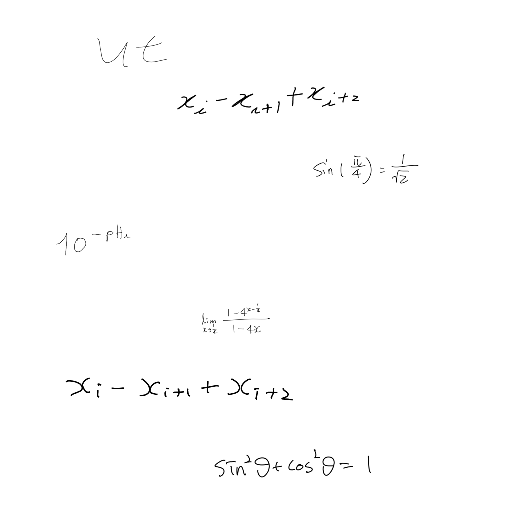 ut
x_i - x_{i+1} + x_{i+2}
sin(π/4) = 1/√2
10^{-pH_i}
lim 1-4^{x-x} / 1-4x
x_i - x_{i+1} + x_{i+2}
sin²θ + cos²θ = 1